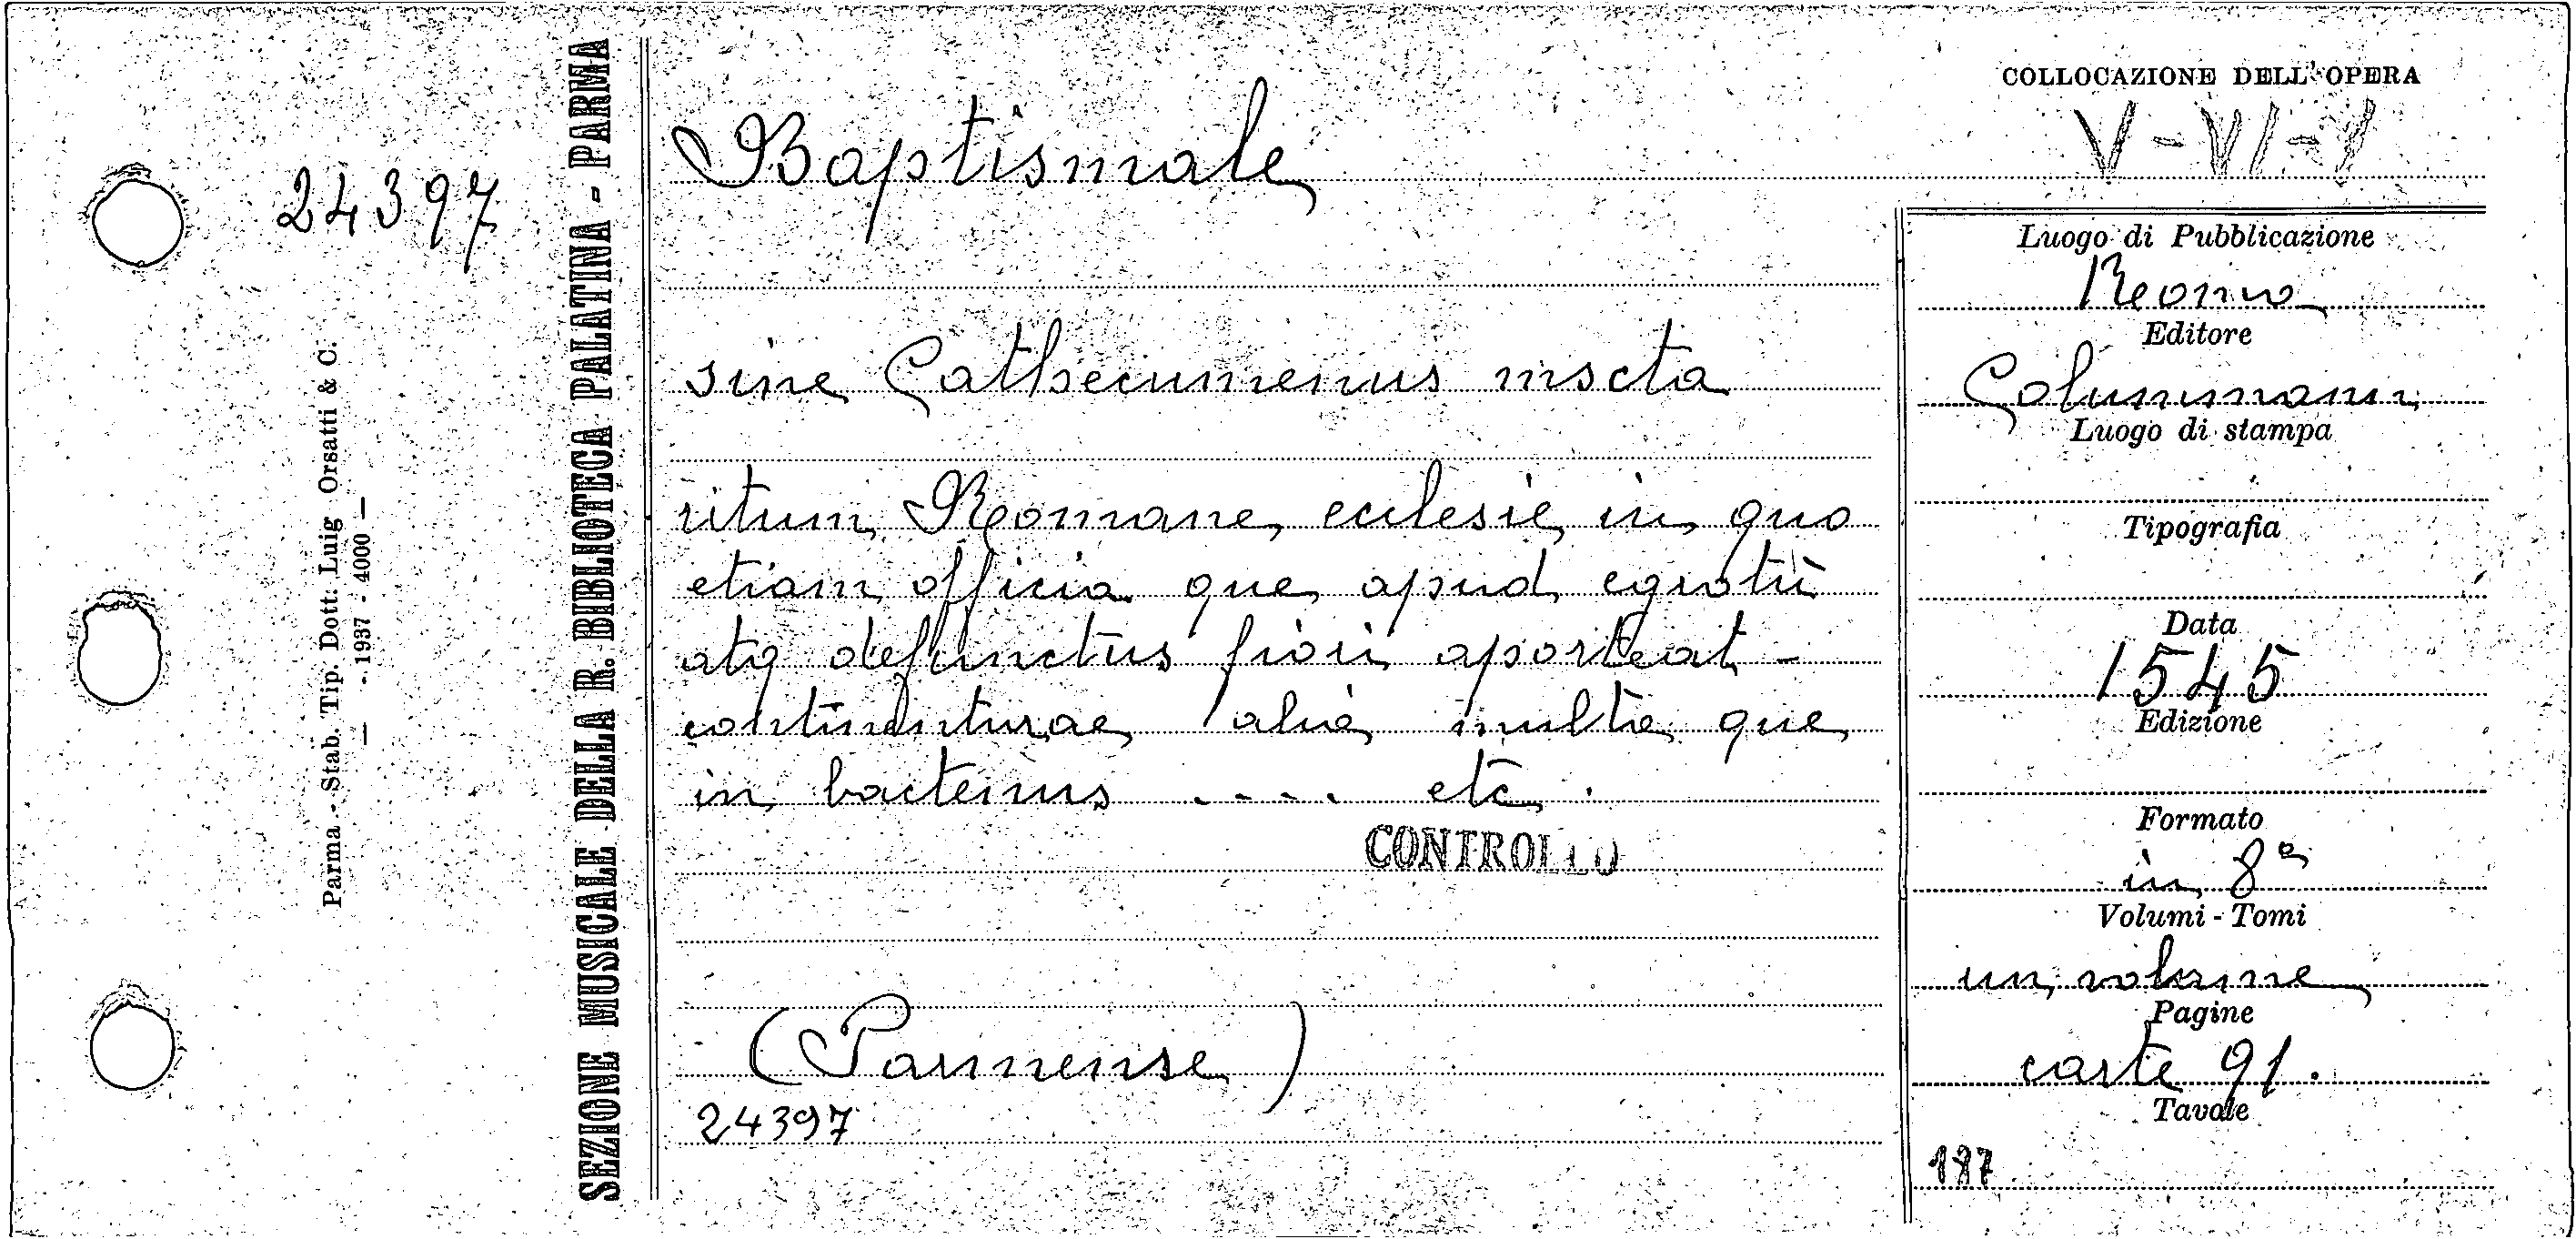 24397
Parma - Stab. Tip. Dott. Luig Orsatti & C.
— - 1937 - 4000 —
SEZIONE MUSICALE DELLA R. BIBLIOTECA PALATINA - PARMA
Baptismale
sine Cathecumenus mscta
ritum Romane ecclesie in quo
etiam officia que apud egrotù
atq defunctus fiori aporteat -
alie multe que
in bacteinus .... etc.
CONTROLLO
(Parmense)
24397
COLLOCAZIONE DELL'OPERA
V-VI-V
Luogo di Pubblicazione
Roma
Editore
Luogo di stampa
Tipografia
Data
1545
Edizione
Formato
in 8º
Volumi - Tomi
un volume
Pagine
carte 91.
Tavole
187